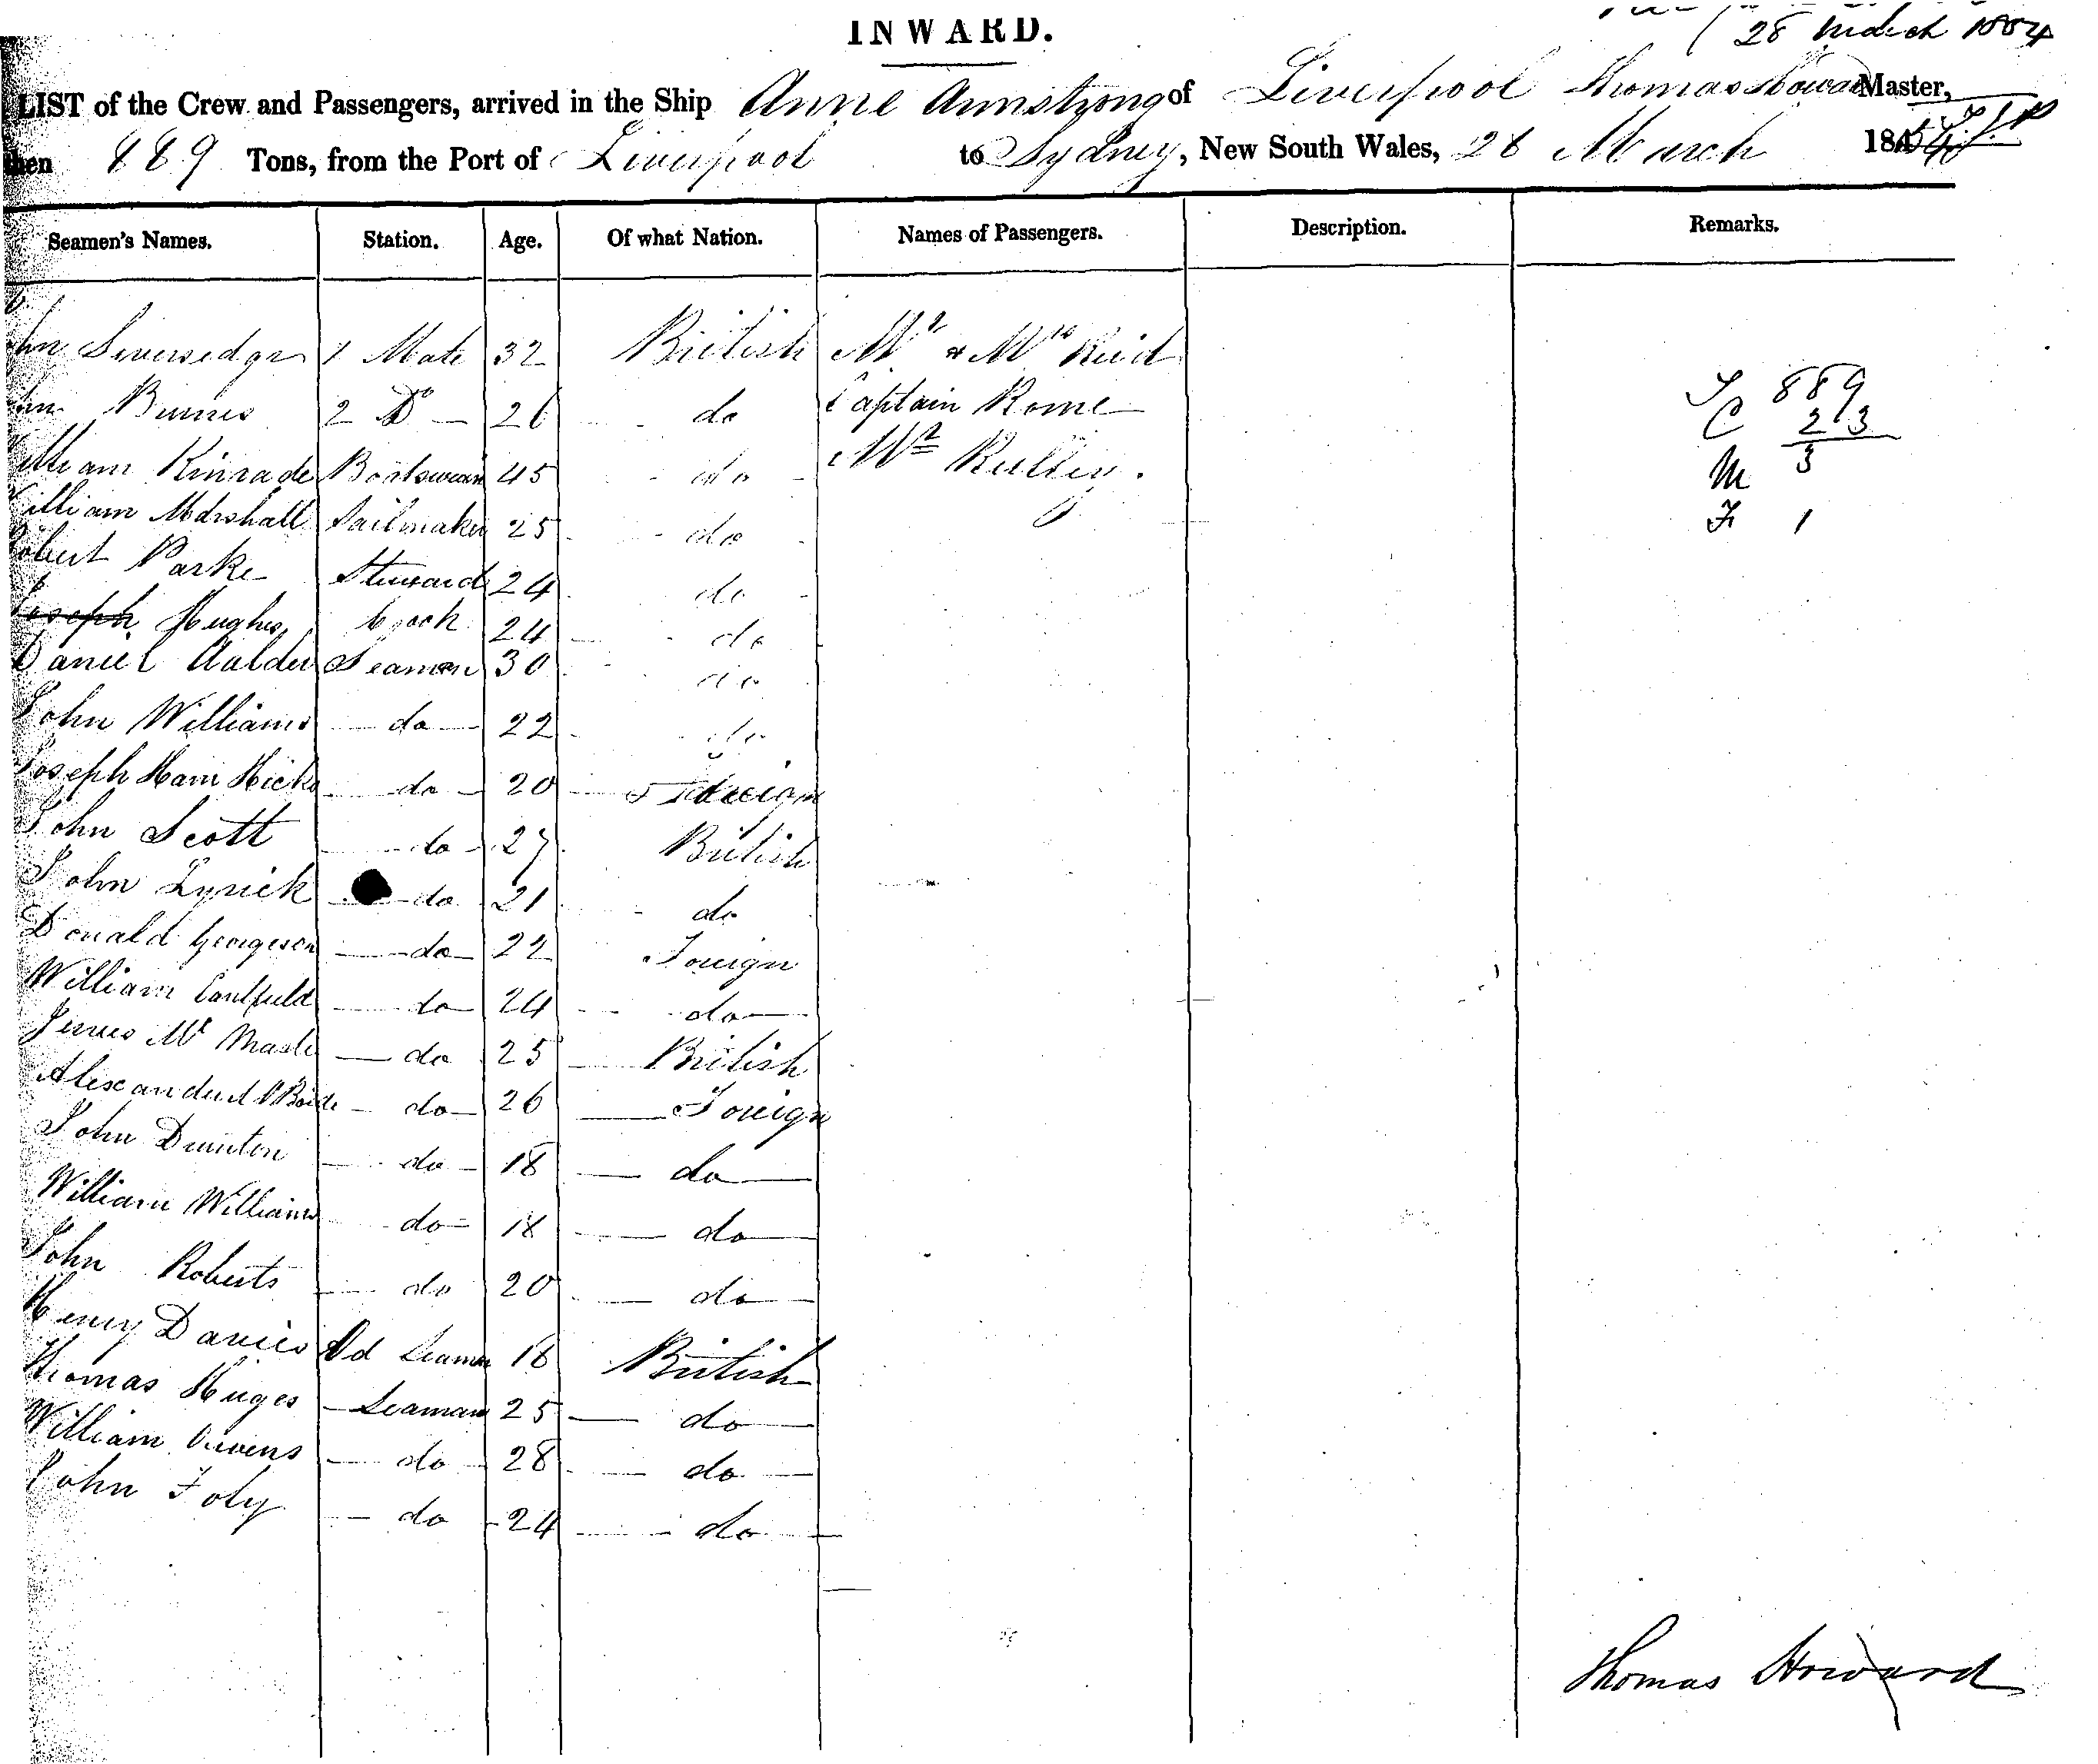 INWARD.
28 March 1854
LIST of the Crew and Passengers, arrived in the Ship Anne Armstrong of Liverpool Thomas Howard Master,
then 889 Tons, from the Port of Liverpool to Sydney, New South Wales, 28 March 1854
Seamen's Names. Station. Age. Of what Nation. Names of Passengers. Description. Remarks.
hn Liversedge 1 Mate 32 British Mr & Mrs Reid
hn Burnes 2 Do 26 do Captain Rome T 889
C 23
William Kinrade Boatswain 45 do Mr M 3
William Marshall Sailmaker 25 do F 1
Robert Parke Steward 24 do
Joseph Hughes Cook 24 do
Daniel Calder Seamen 30 do
John Williams do 22 do
Joseph Ham Hicks do 20 Foreign
John Scott do 27 British
John Lyrick do 21 do
Donald Georgeson do 22 Foreign
William Caulfield do 24 do
James Mc Master do 25 British
Alexander do 26 Foreign
John Drinton do 18 do
William Williams do 18 do
John Roberts do 20 do
Henry Davies Od Seaman 18 British
Thomas Huges Seaman 25 do
William Owens do 28 do
John Foly do 24 do
Thomas Howard